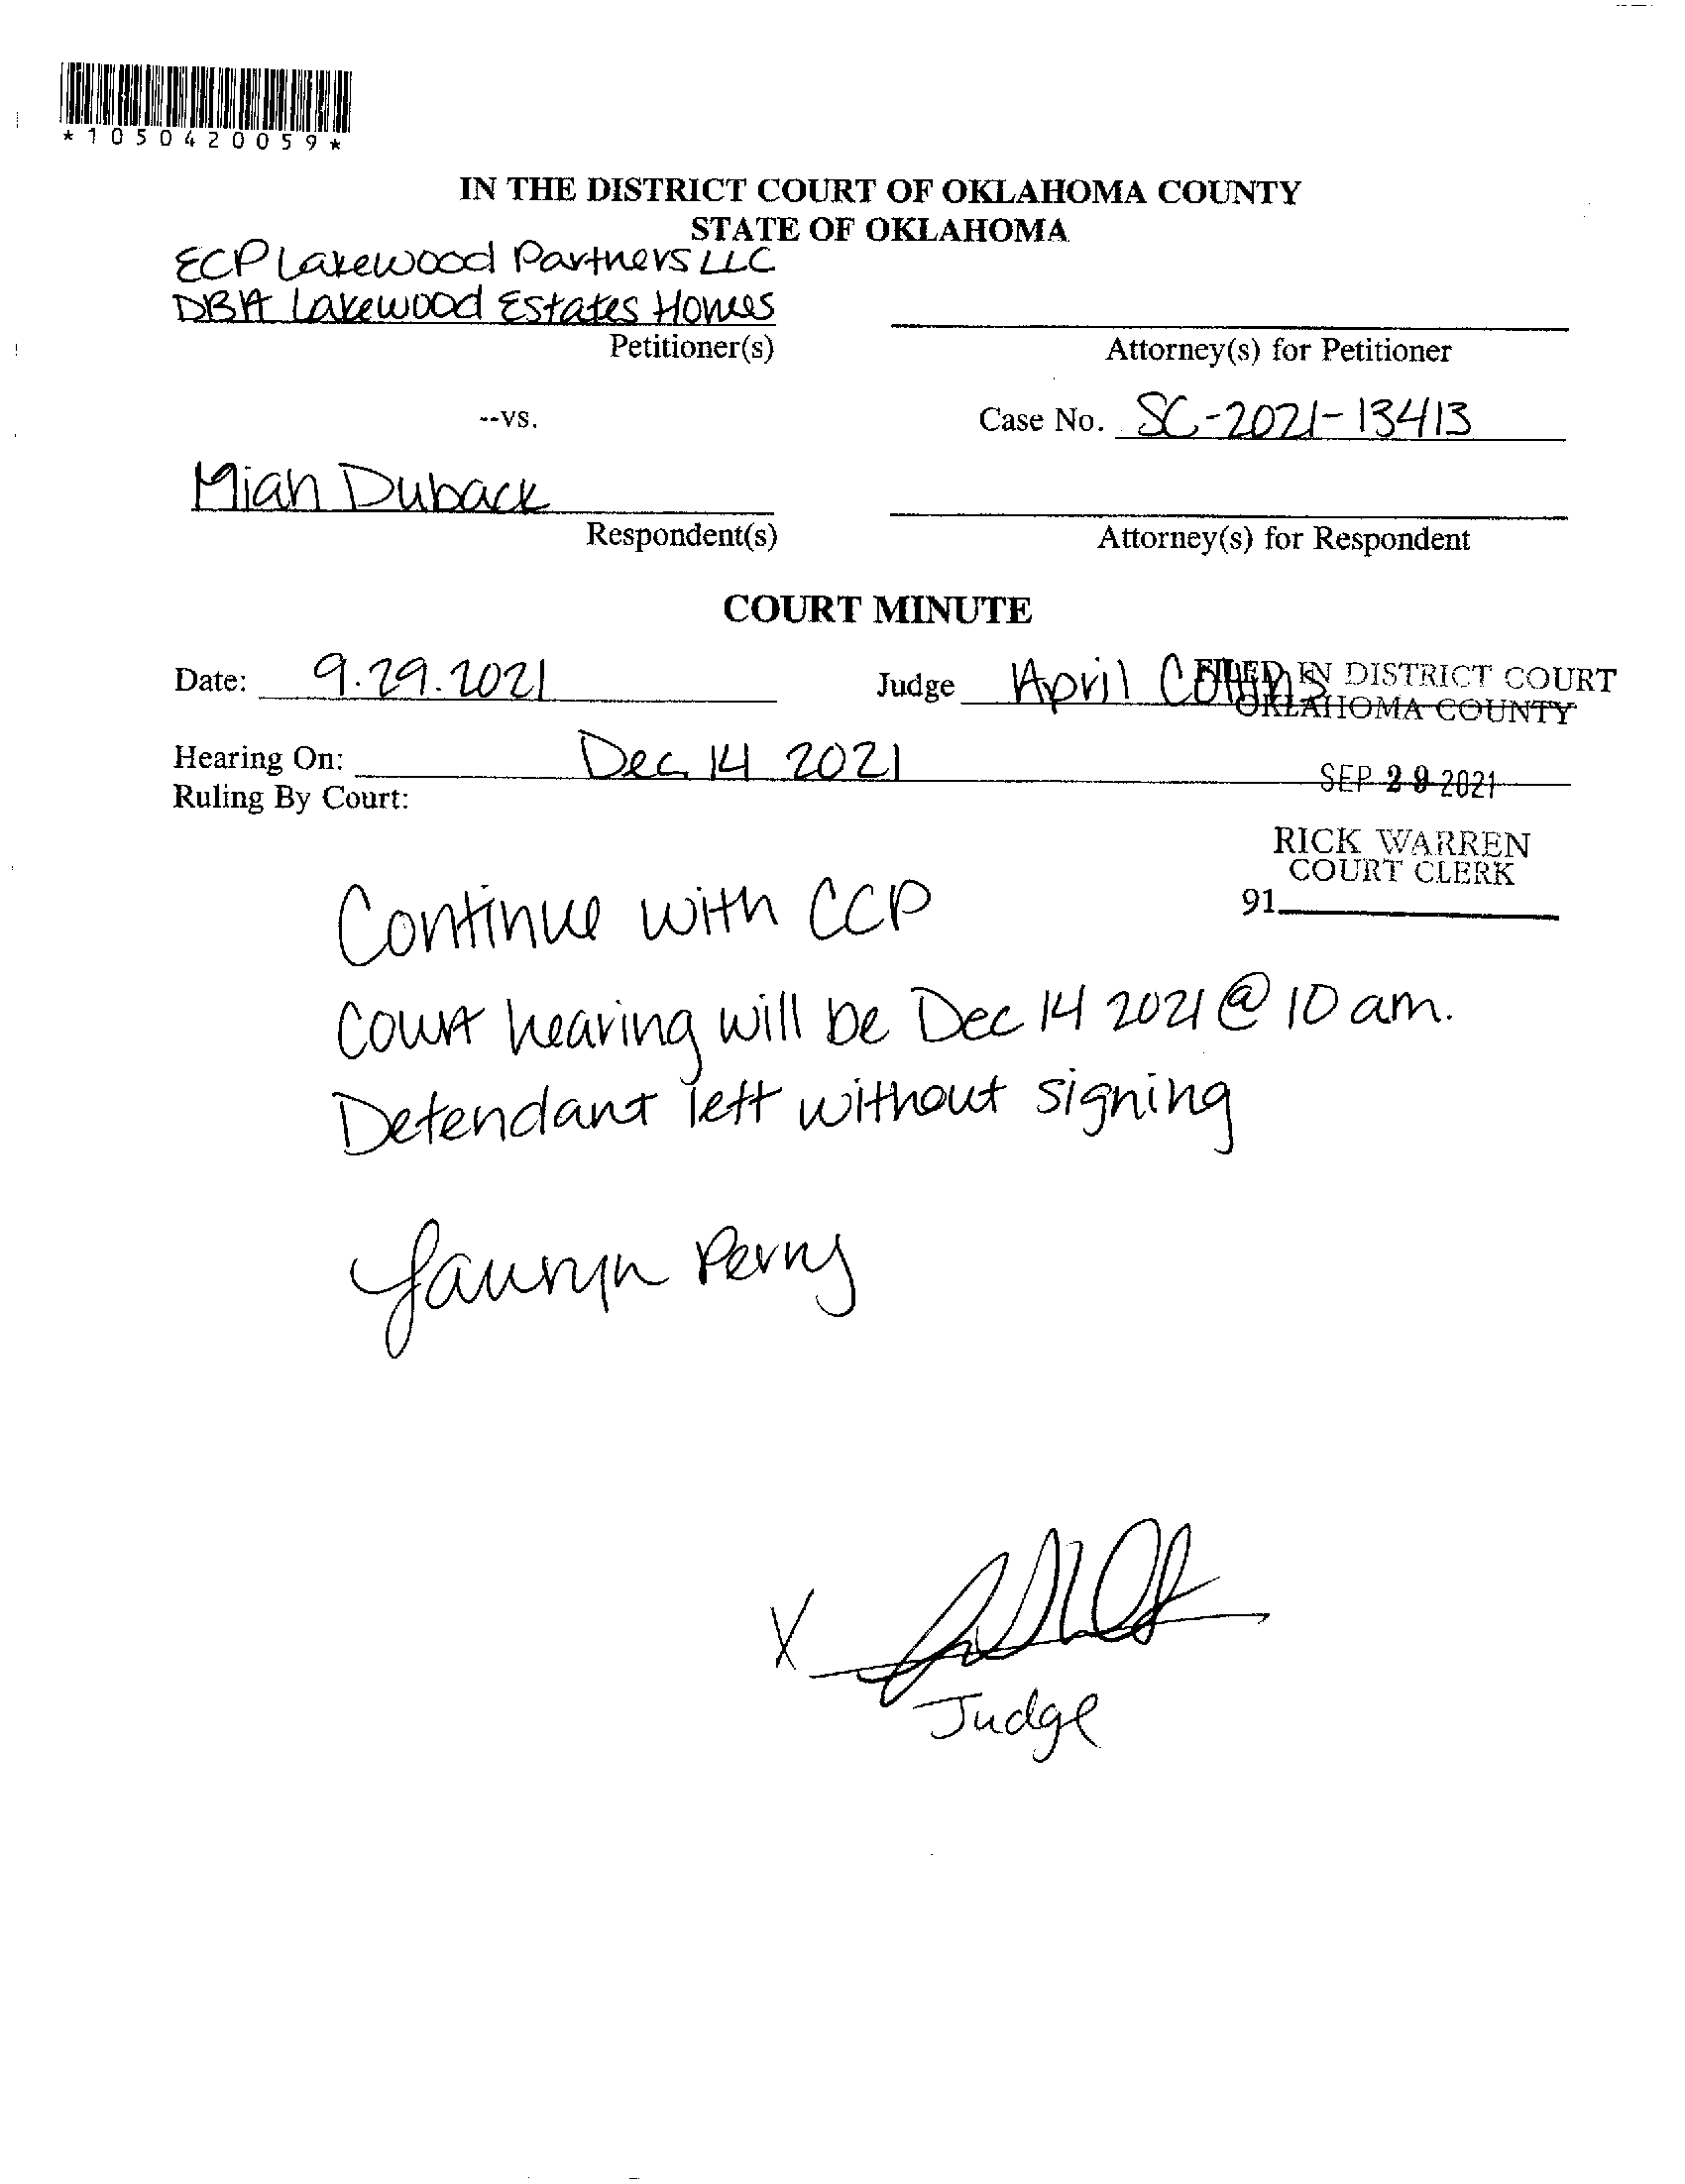 *1050420059*
IN THE DISTRICT COURT OF OKLAHOMA COUNTY
STATE OF OKLAHOMA
ECP Lakewood Partners LLC
DBA Lakewood Estates Homes
Petitioner(s)
Attorney(s) for Petitioner
--vs.
Case No. SC-2021-13413
Miah Duback
Respondent(s)
Attorney(s) for Respondent
COURT MINUTE
Date: 9.29.2021
Judge April Collins
FILED IN DISTRICT COURT
OKLAHOMA COUNTY
Hearing On: Dec 14 2021
SEP 29 2021
Ruling By Court:
RICK WARREN
COURT CLERK
91
Continue with CCP
Court hearing will be Dec 14 2021 @ 10 am.
Defendant left without signing
Lauryn Perry
X
Judge